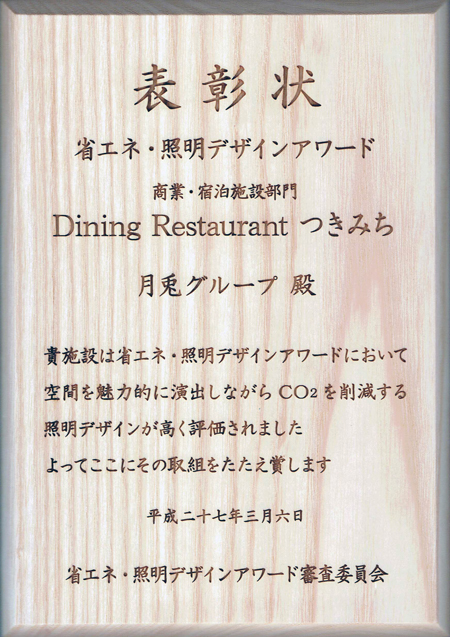 表彰状
省エネ・照明デザインアワード
商業・宿泊施設部門
Dining Restaurant つきみち
月兎グループ 殿
貴施設は省エネ・照明デザインアワードにおいて
空間を魅力的に演出しながら CO2 を削減する
照明デザインが高く評価されました
よってここにその取組をたたえ賞します
平成二十七年三月六日
省エネ・照明デザインアワード審査委員会